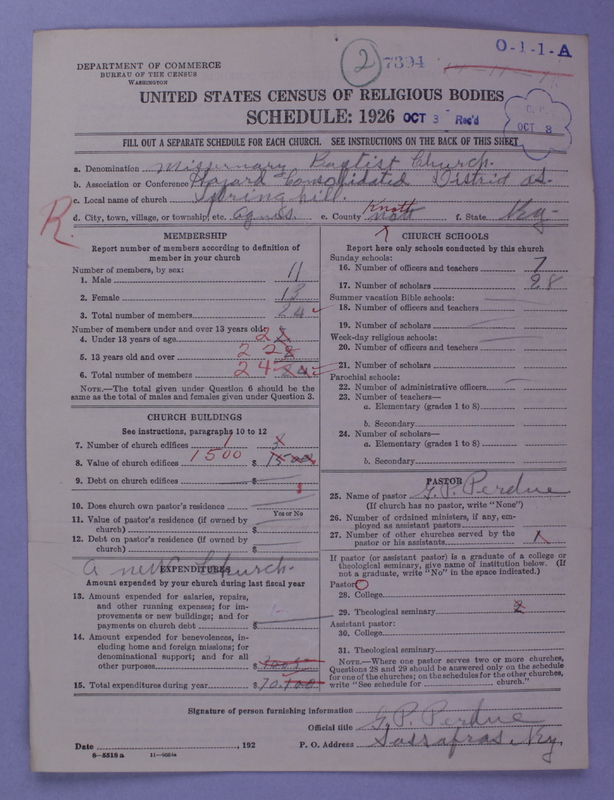 DEPARTMENT OF COMMERCE
BUREAU OF THE CENSUS
WASHINGTON
2 7394
O-1-1-A
UNITED STATES CENSUS OF RELIGIOUS BODIES
SCHEDULE: 1926 OCT 3 Rec'd
OCT 8
FILL OUT A SEPARATE SCHEDULE FOR EACH CHURCH. SEE INSTRUCTIONS ON THE BACK OF THIS SHEET
a. Denomination Missionary Baptist Church.
b. Association or Conference Hazard Consolidated District as.
c. Local name of church Spring hill.
R
d. City, town, village, or township, etc. e. County Knott f. State Ky-
MEMBERSHIP
Report number of members according to definition of member in your church
Number of members, by sex:
1. Male 11
2. Female 13
3. Total number of members 24
Number of members under and over 13 years old:
4. Under 13 years of age 2
5. 13 years old and over 22
6. Total number of members 24
NOTE.—The total given under Question 6 should be the same as the total of males and females given under Question 3.
CHURCH BUILDINGS
See instructions, paragraphs 10 to 12
7. Number of church edifices 1
8. Value of church edifices 1500 $ 1500
9. Debt on church edifices $
10. Does church own pastor's residence
Yes or No
11. Value of pastor's residence (if owned by church) $
12. Debt on pastor's residence (if owned by church) $
a new church.
EXPENDITURES
Amount expended by your church during last fiscal year
13. Amount expended for salaries, repairs, and other running expenses; for improvements or new buildings; and for payments on church debt $
14. Amount expended for benevolences, including home and foreign missions; for denominational support; and for all other purposes $
15. Total expenditures during year $ 70.
CHURCH SCHOOLS
Report here only schools conducted by this church
Sunday schools:
16. Number of officers and teachers 7
17. Number of scholars 28
Summer vacation Bible schools:
18. Number of officers and teachers
19. Number of scholars
Week-day religious schools:
20. Number of officers and teachers
21. Number of scholars
Parochial schools:
22. Number of administrative officers
23. Number of teachers—
a. Elementary (grades 1 to 8)
b. Secondary
24. Number of scholars—
a. Elementary (grades 1 to 8)
b. Secondary
PASTOR
25. Name of pastor G. P. Perdue
(If church has no pastor, write "None")
26. Number of ordained ministers, if any, employed as assistant pastors
27. Number of other churches served by the pastor or his assistants 1
If pastor (or assistant pastor) is a graduate of a college or theological seminary, give name of institution below. (If not a graduate, write "No" in the space indicated.)
Pastor:
28. College
29. Theological seminary 2
Assistant pastor:
30. College
31. Theological seminary
NOTE.—Where one pastor serves two or more churches, Questions 28 and 29 should be answered only on the schedule for one of the churches; on the schedules for the other churches, write "See schedule for church."
Signature of person furnishing information
Official title G. P. Perdue
Date , 192 P. O. Address Sassafras, Ky,
6-5518 a 11-